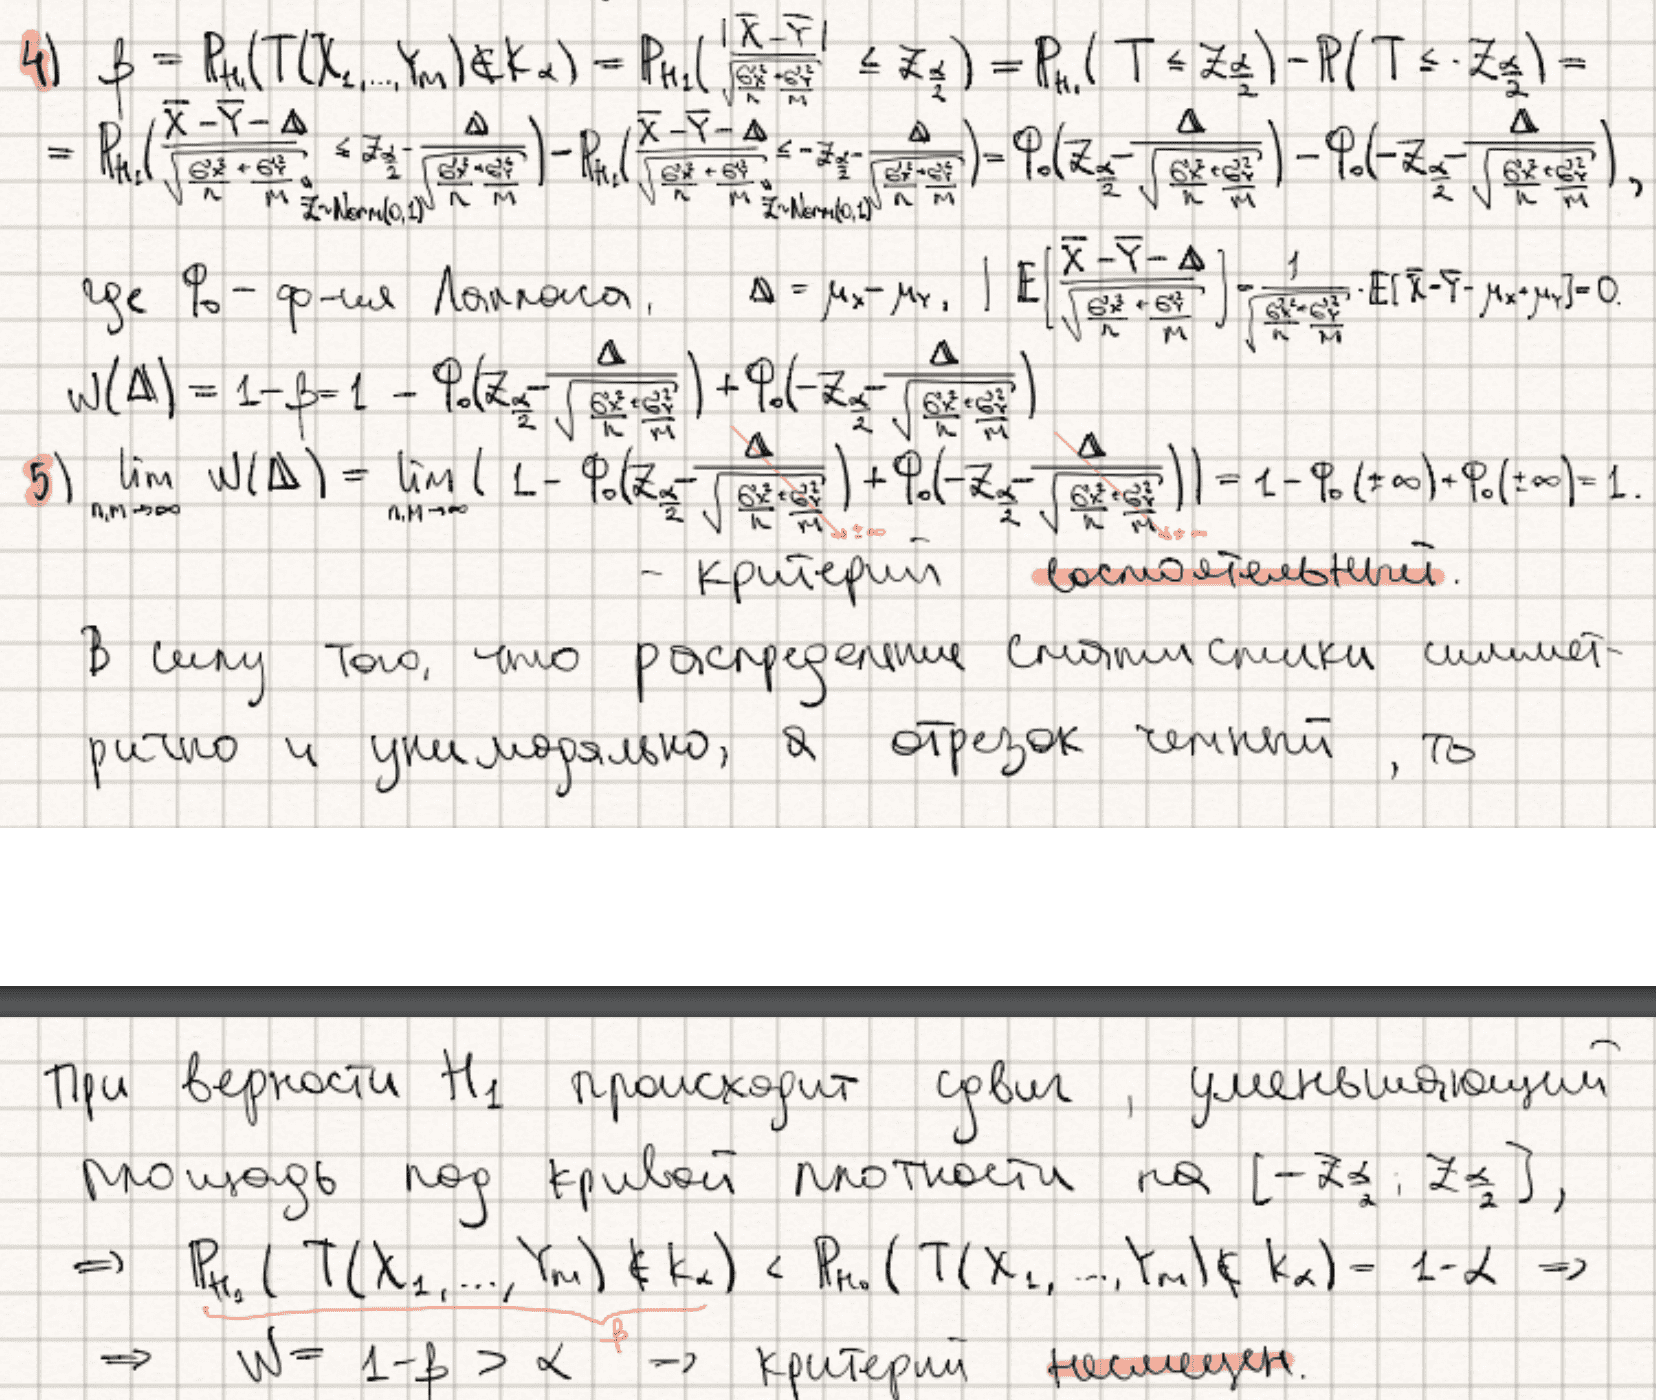 4) β = P_{H₁}(T(X₁,...,Yₘ)∉K_α) = P_{H₁}(|X̄-Ȳ|/√(σ_X²/n + σ_Y²/m) ≤ z_{α/2}) = P_{H₁}(T ≤ z_{α/2}) - P(T ≤ -z_{α/2}) =
= P_{H₁}((X̄-Ȳ-Δ)/√(σ_X²/n + σ_Y²/m) ≤ z_{α/2} - Δ/√(σ_X²/n + σ_Y²/m)) - P_{H₁}((X̄-Ȳ-Δ)/√(σ_X²/n + σ_Y²/m) ≤ -z_{α/2} - Δ/√(σ_X²/n + σ_Y²/m)) = Φ₀(z_{α/2} - Δ/√(σ_X²/n + σ_Y²/m)) - Φ₀(-z_{α/2} - Δ/√(σ_X²/n + σ_Y²/m)),
Z~Norm(0,1) Z~Norm(0,1)
где Φ₀ - ф-ция Лапласа, Δ = μ_X - μ_Y, | E[(X̄-Ȳ-Δ)/√(σ_X²/n + σ_Y²/m)] = 1/√(σ_X²/n + σ_Y²/m) · E[X̄-Ȳ-μ_X+μ_Y] = 0.
W(Δ) = 1-β = 1 - Φ₀(z_{α/2} - Δ/√(σ_X²/n + σ_Y²/m)) + Φ₀(-z_{α/2} - Δ/√(σ_X²/n + σ_Y²/m))
5) lim_{n,m→∞} W(Δ) = lim_{n,m→∞} (1 - Φ₀(z_{α/2} - Δ/√(σ_X²/n + σ_Y²/m)) + Φ₀(-z_{α/2} - Δ/√(σ_X²/n + σ_Y²/m))) = 1 - Φ₀(±∞) + Φ₀(±∞) = 1.
±∞ ±∞
- критерий состоятельный.
В силу того, что распределение статистики симмет-
рично и унимодально, а отрезок четный, то
При верности H₁ происходит сдвиг, уменьшающий
площадь под кривой плотности на [-z_{α/2}; z_{α/2}],
⇒ P_{H₁}(T(X₁,...,Yₘ)∉K_α) < P_{H₀}(T(X₁,...,Yₘ)∉K_α) = 1-α ⇒
β
⇒ W = 1-β > α → критерий несмещен.